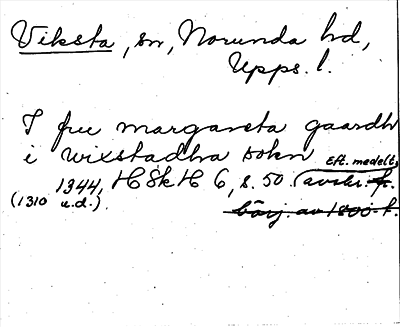 Viksta, sn, Norunda hd,
Upps. l.
I fru margareta gaardh
i wixstadha sokn Eft. medelt.
1344, HSkH 6, s. 50. (avskr. fr.
(1310 u.d.). börj. av 1800-t.